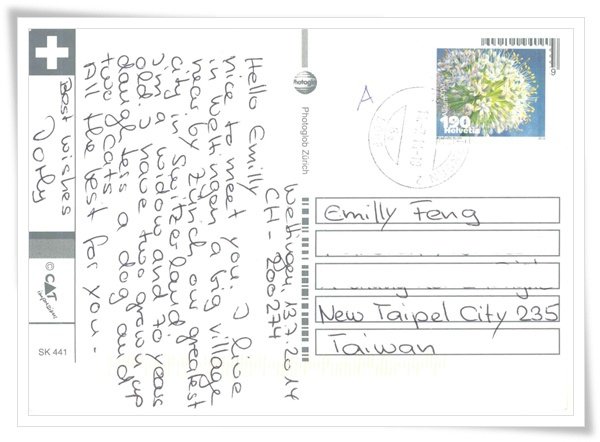 Wettingen, 13.7.2014
CH - 200274
Hello Emilly
nice to meet you. I live
in Wettingen a big village
near by Zürich our greatest
city in Switzerland.
I'm a widow and 70 years
old. I have two grown up
daughters a dog and
two cats.
All the best for you -
Best wishes
© CAT
SK 441
Photoglob
Photoglob Zürich
A
190
Helvetia
9
Emilly Feng
New Taipei City 235
Taiwan